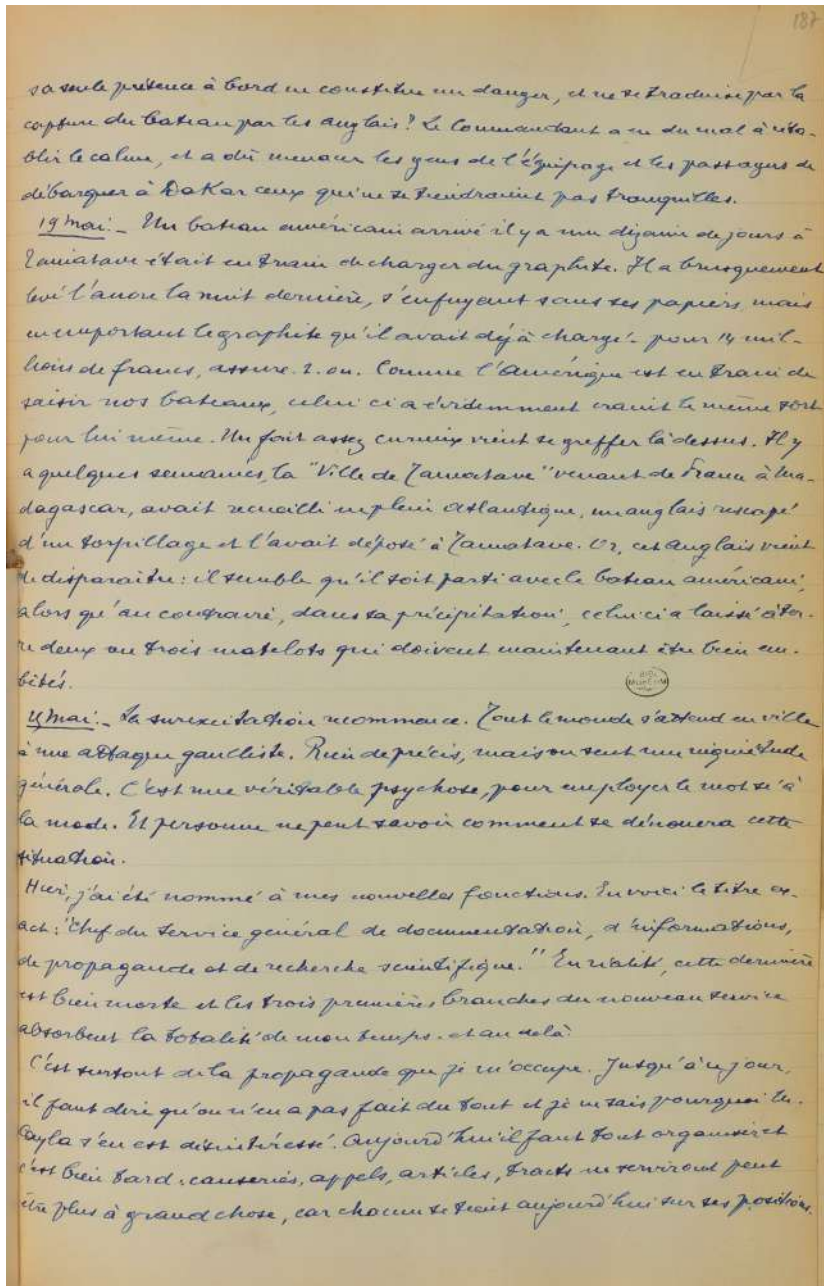 187
sa seule présence à bord ne constitue un danger, et ne se traduise par la
capture du bateau par les anglais! Le Commandant a eu du mal à réta-
blir le calme, et a dû menacer les gens de l'équipage et les passagers de
débarquer à Dakar ceux qui ne se tiendraient pas tranquilles.
19 mai:_ Un bateau américain arrivé il y a une dizaine de jours à
Tamatave était en train de charger du graphite. Il a brusquement
levé l'ancre la nuit dernière, s'enfuyant sans ses papiers, mais
en emportant le graphite qu'il avait déjà chargé - pour 14 mil-
lions de francs, assure-t-on. Comme l'Amérique est en train de
saisir nos bateaux, celui ci a évidemment craint le même sort
pour lui même. Un fait assez curieux vient se greffer là dessus. Il y
a quelques semaines, la "Ville de Tamatave" venant de France à Ma-
dagascar, avait recueilli en plein Atlantique, un anglais rescapé
d'un torpillage et l'avait déposé à Tamatave. Or, cet anglais vient
de disparaître: il semble qu'il soit parti avec le bateau américain,
alors qu'au contraire, dans sa précipitation, celui ci a laissé à ter-
re deux ou trois matelots qui doivent maintenant être bien em-
bêtés.
BIBL
MUSÉUM
mai:_ La surexcitation recommence. Tout le monde s'attend en ville
à une attaque gaulliste. Rien de précis, mais on sent une inquiétude
générale. C'est une véritable psychose, pour employer le mot si à
la mode. Et personne ne peut savoir comment se dénouera cette
situation.
Hier, j'ai été nommé à mes nouvelles fonctions. En voici le titre ex-
act: "Chef du Service général de documentation, d'informations,
de propagande et de recherche scientifique." En réalité, cette dernière
est bien morte et les trois premières branches du nouveau service
absorbent la totalité de mon temps - et au delà.
C'est surtout de la propagande que je m'occupe. Jusqu'à ce jour,
il faut dire qu'on n'en a pas fait du tout et je ne sais pourquoi
Cayla s'en est désintéressé. Aujourd'hui il faut tout organiser et
c'est bien tard: causeries, appels, articles, tracts ne serviront peut
être plus à grand chose, car chacun se tient aujourd'hui sur ses positions.